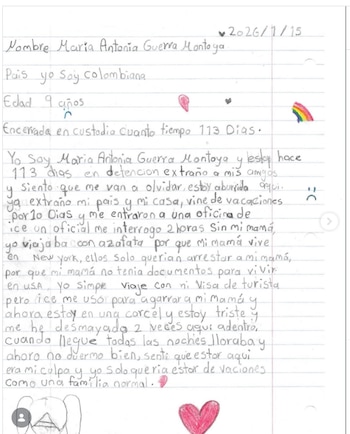 2026/1/15
Nombre Maria Antonia Guerra Montoya
Pais yo Soy colombiana
Edad 9 años
Encerrada en custodia cuanto tiempo 113 Dias.
Yo Soy Maria Antonia Guerra Montoya y estoy hace
113 dias en detencion extraño a mis amigos
y siento que me van a olvidar. estoy aburrida aqui.
ya extraño mi pais y mi casa, vine de vacaciones
por 10 Dias y me entraron a una oficina de
ice un oficial me interrogo 2 horas Sin mi mamá,
yo viajaba con azafata por que mi mamá vive
en New york, ellos Solo querian arrestar a mi mamá,
por que mi mamá no tenia documentos para vivir
en USA. yo Simple viaje con mi Visa de turista
pero ice me uso para agarrar a mi mamá y
ahora estoy en una carcel y estoy triste y
me he desmayado 2 veces aqui adentro,
cuando llegue todas las noches lloraba y
ahora no duermo bien, senti que estar aqui
era mi culpa y yo solo queria estar de vaciones
como una familia normal.